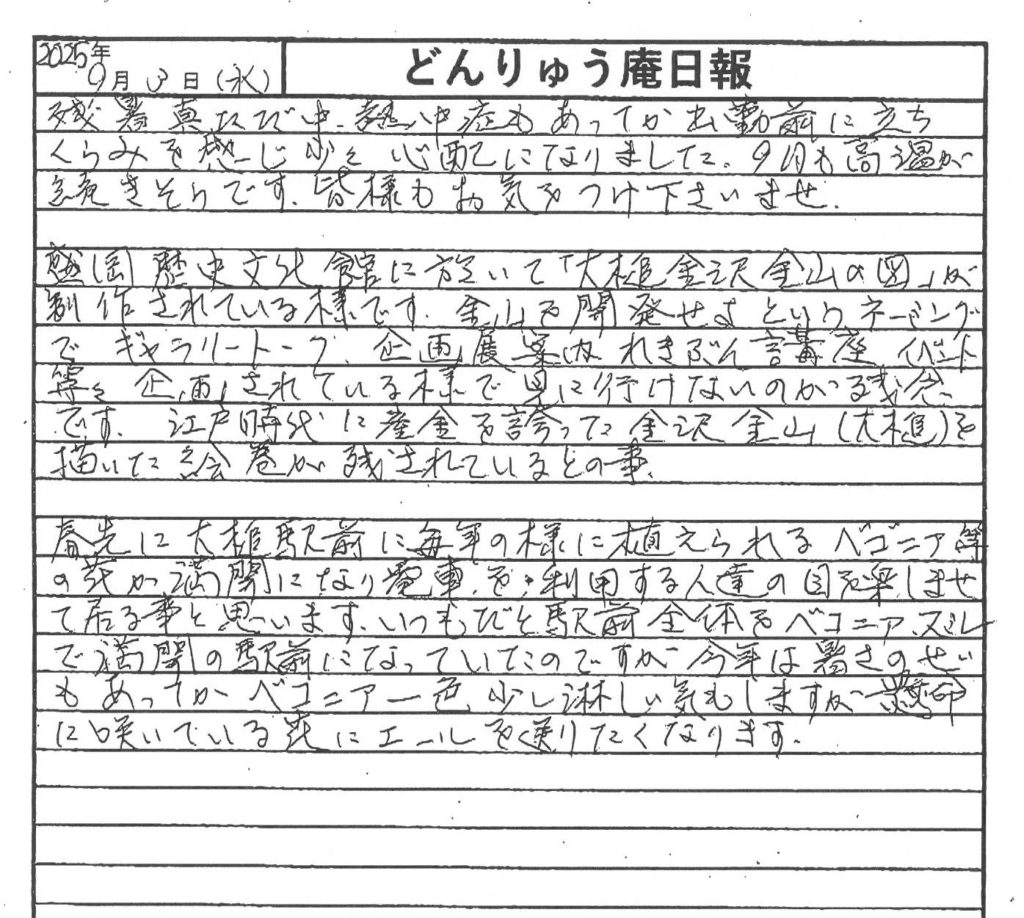 2025年
9月3日(水)
どんりゅう庵日報
残暑真ただ中、熱中症もあってか出勤前に立ち
くらみを感じ少々心配になりました。9月も高温が
続きそうです。皆様もお気をつけ下さいませ。
盛岡歴史文化館に於いて「大槌金沢金山の図」が
制作されている様です。金山を開発せよというネーミング
でギャラリートーク、企画展案内れきぶん講座イベント
等々企画されている様で見に行けないのが残念
です。江戸時代に産金を誇った金沢金山(大槌)を
描いた絵巻が残されているとの事。
春先に大槌駅前に毎年の様に植えられるベゴニア等
の花が満開になり電車を利用する人達の目を楽しませ
て居る事と思います。いつもだと駅前全体をベコニア、
で満開の駅前になっていたのですが今年は暑さのせい
もあってかベコニア一色少し淋しい気もしますが懸命
に咲いている花にエールを送りたくなります。